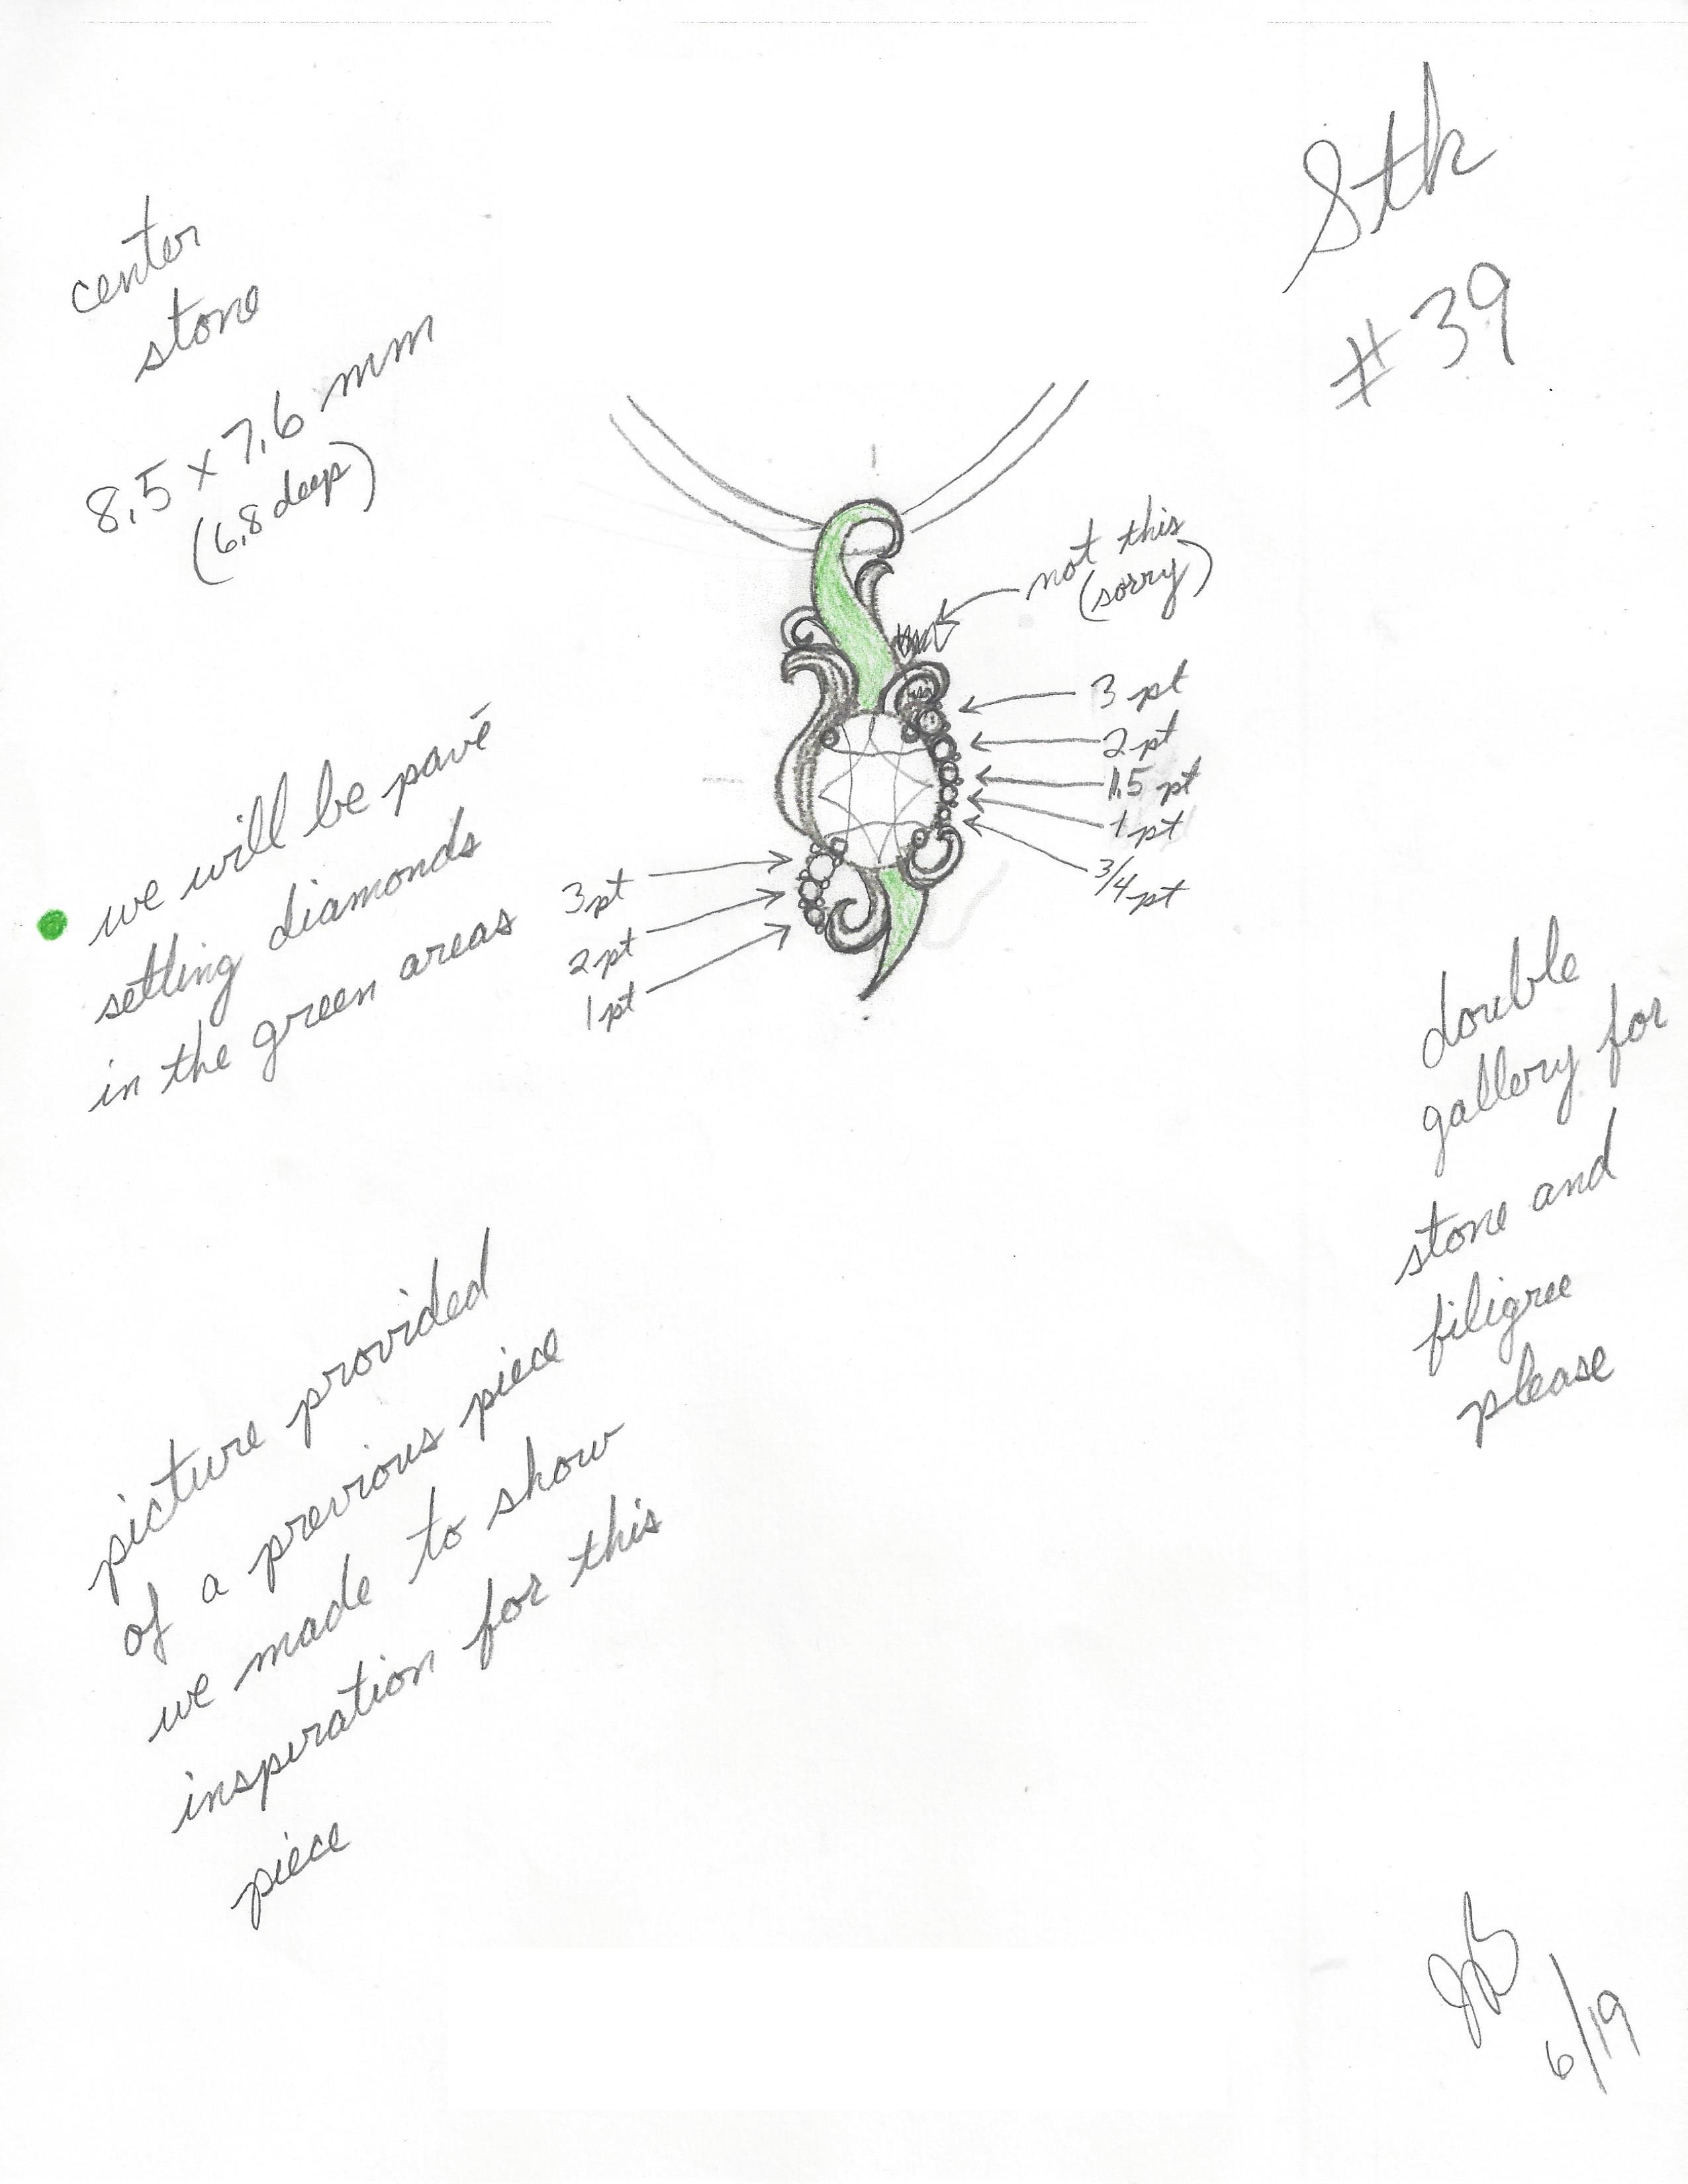 Stk
#39
center
stone
8.5 x 7.6 mm
(6.8 deep)
not this
(sorry)
3 pt
2 pt
1.5 pt
1 pt
3/4 pt
we will be pavé
setting diamonds
in the green areas
3 pt
2 pt
1 pt
double
gallery for
stone and
filigree
please
picture provided
of a previous piece
we made to show
inspiration for this
piece
JB
6/19